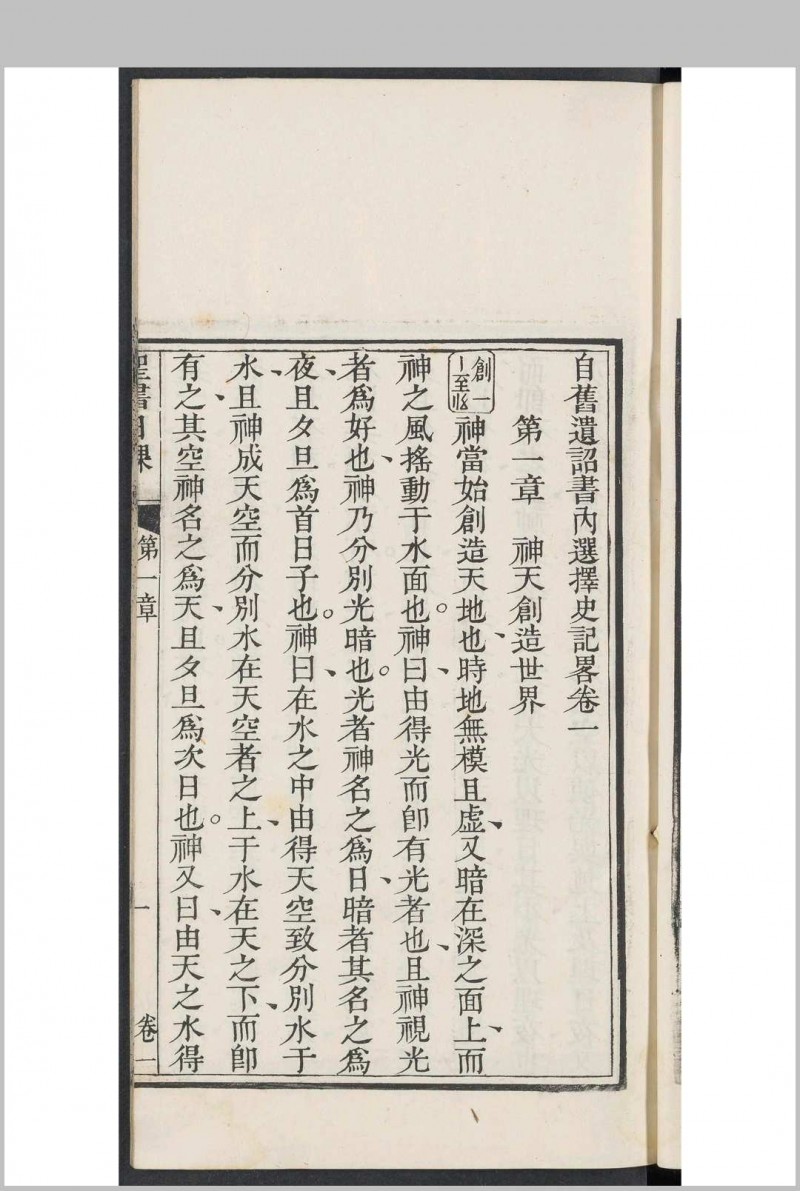 自舊遺詔書內選擇史記畧卷一
第一章　神天創造世界
創一 神當始創造天地也、時地無模且虛、又暗在深之面上、而
神之風搖動于水面也。神曰、由得光而卽有光者也、且神視光
者爲好也、神乃分別光暗也。光者神名之爲日、暗者其名之爲
夜、且夕旦爲首日子也。神曰、在水之中由得天空致分別水于
水、且神成天空而分別水在天空者之上、于水在天之下、而卽
有之、其空神名之爲天、且夕旦爲次日也。神又曰、由天之水得
聖書日課
第一章
一
卷一